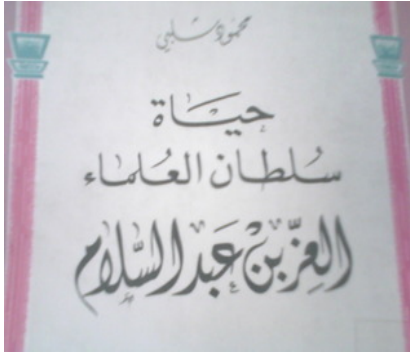 محمود شلبي
حياة
سلطان العلماء
العز بن عبد السلام